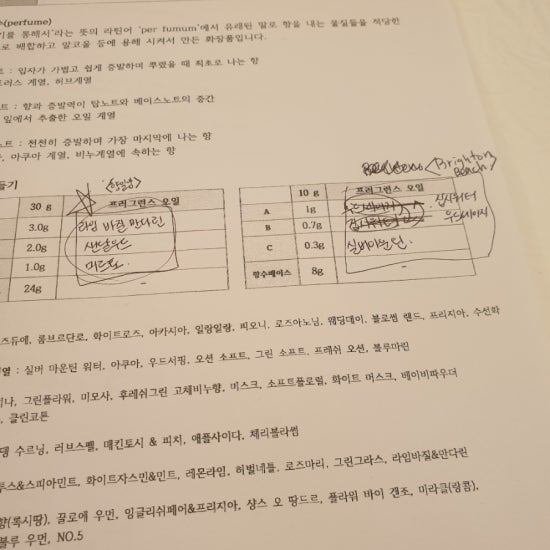 (perfume)
기를 통해서'라는 뜻의 라틴어 'per fumum'에서 유래된 말로 향을 내는 물질들을 적당한
로 배합하고 알코올 등에 용해 시켜서 만든 화장품입니다.
트 : 입자가 가볍고 쉽게 증발하며 뿌렸을 때 최초로 나는 향
트러스 계열, 허브계열
트 : 향과 증발력이 탑노트와 베이스노트의 중간
잎에서 추출한 오일 계열
노트 : 천천히 증발하며 가장 마지막에 나는 향
아쿠아 계열, 비누계열에 속하는 향
들기
<Brighton Beach>
30 g 프래그런스 오일
3.0g 라임 바질 만다린
2.0g 샌달우드
1.0g 미르토.
24g
10 g 프래그런스 오일
A 1g 우드세이지
B 0.7g
C 0.3g 실버마운틴.
향수베이스 8g -
즈듀에, 롬브르단로, 화이트로즈, 아카시아, 일랑일랑, 피오니, 로즈아노님, 웨딩데이, 블로썸 랜드, 프리지아, 수선화
열 : 실버 마운틴 워터, 아쿠아, 우드서핑, 오션 소프트, 그린 소프트, 프레쉬 오션, 블루마린
나, 그린플라워, 미모사, 후레쉬그린 고체비누향, 머스크, 소프트플로럴, 화이트 머스크, 베이비파우더
클린코튼
탱 수르닝, 러브스펠, 매킨토시 & 피치, 애플사이다, 체리블라썸
투스&스피아민트, 화이트자스민&민트, 레몬라임, 허벌네틀, 로즈마리, 그린그라스, 라임바질&만다린
향(록시땅), 끌로에 우먼, 잉글리쉬페어&프리지아, 샹스 오 땅드르, 플라워 바이 겐조, 미라클(랑콤),
블루 우먼, NO.5